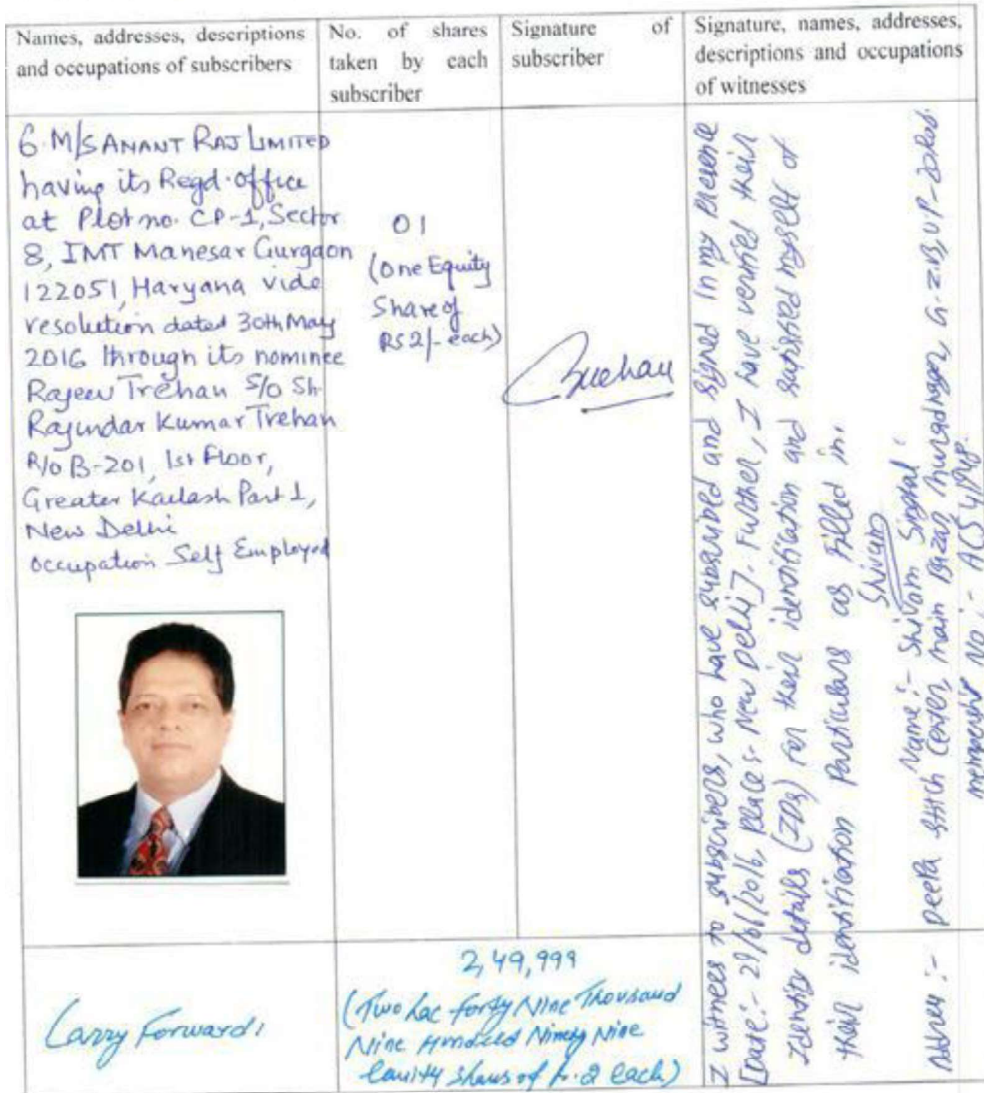 Names, addresses, descriptions
and occupations of subscribers
No. of shares
taken by each
subscriber
Signature of
subscriber
Signature, names, addresses,
descriptions and occupations
of witnesses
6. M/S ANANT RAJ LIMITED
having its Regd. office
at Plot no. CP-1, Sector
8, IMT Manesar Gurgaon
122051, Haryana vide
resolution dated 30th May
2016 through its nominee
Rajeev Trehan S/o Sh.
Rajindar Kumar Trehan
R/o B-201, 1st Floor,
Greater Kailash Part 1,
New Delhi
Occupation Self Employed
01
(One Equity
Share of
RS 2/- each)
Trehan
I witness to subscribers, who have subscribed and signed in my presence
[Date:- 21/06/2016, Place:- New Delhi]. Further, I have verified their
Identity details (IDs) for their identification and satisfied myself of
their identification Particulars as filled in.
Shivam
Name:- Shivam Singhal
Address:- Deepa Stitch Center, main Bazar muradnagar, G.ZB, UP-
membership No:- ACS
Carry Forward:
2,49,999
(Two Lac forty Nine Thousand
Nine Hundred Ninety Nine
Equity Shares of Rs. 2 each)